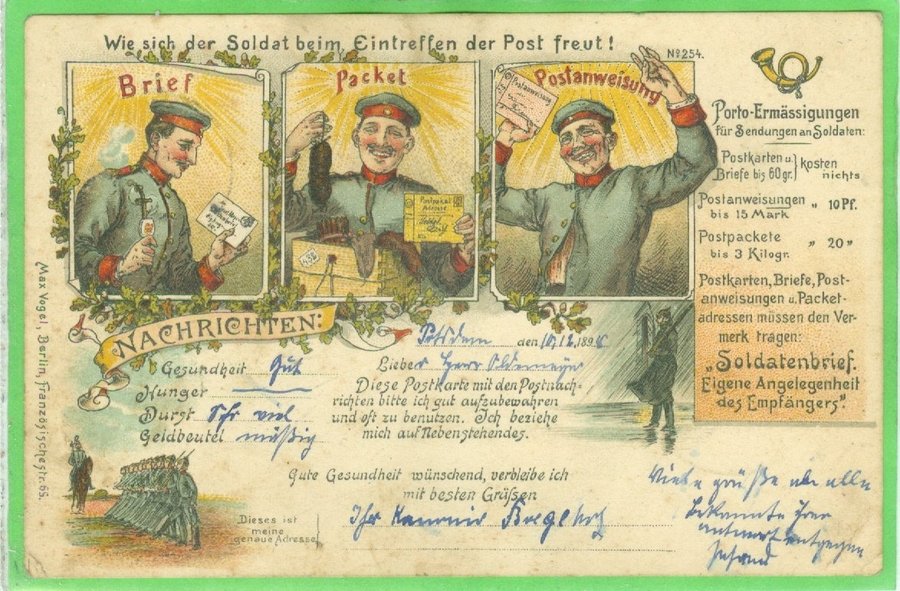 Wie sich der Soldat beim Eintreffen der Post freut!
No 254.
Brief
Packet
Postanweisung
Porto-Ermässigungen
für Sendungen an Soldaten:
Postkarten u. Briefe bis 60 gr. } kosten nichts
Postanweisungen bis 15 Mark „ 10 Pf.
Postpackete bis 3 Kilogr. „ 20 „
Postkarten, Briefe, Post-
anweisungen u. Packet-
adressen müssen den Ver-
merk tragen:
„Soldatenbrief.
Eigene Angelegenheit
des Empfängers".
Max Vogel, Berlin, Französischestr. 65.
NACHRICHTEN:
Potsdam den 10/12 1898
Gesundheit Gut
Hunger
Durst Sehr viel
Geldbeutel mäßig
Lieber Herr
Diese Postkarte mit den Postnach-
richten bitte ich gut aufzubewahren
und oft zu benutzen. Ich beziehe
mich auf Nebenstehendes.
Gute Gesundheit wünschend, verbleibe ich
mit besten Grüssen
Ihr
Dieses ist
meine
genaue Adresse
Viele grüße an alle
Bekannte Ihrer
antwort entgegen
sehend